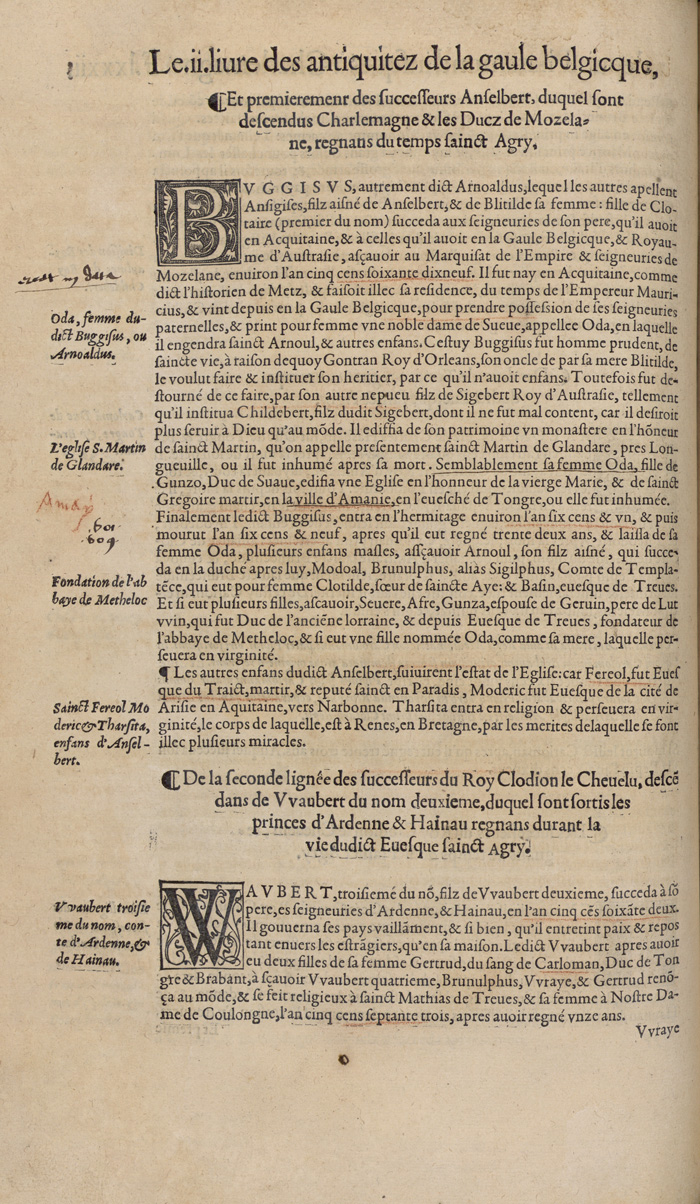 Le.ii.liure des antiquitez de la gaule belgicque,
¶Et premieremenr des successeurs Anselbert, duquel sont
descendus Charlemagne & les Ducz de Mozela-
ne, regnans du temps sainct Agry.
BVGGISVS, autrement dict Arnoaldus, lequel les autres apellent
Ansigises, filz aisné de Anselbert, & de Blitilde sa femme : fille de Clo-
taire (premier du nom) succeda aux seigneuries de son pere, qu'il auoit
en Acquitaine, & à celles qu'il auoit en la Gaule Belgicque, & Royau-
me d'Austrasie, asçauoir au Marquisat de l'Empire & seigneuries de
Mozelane, enuiron l'an cinq cens soixante dixneuf. Il fut nay en Acquitaine, comme
dict l'historien de Metz, & faisoit illec sa residence, du temps de l'Empereur Mauri-
cius, & vint depuis en la Gaule Belgicque, pour prendre possession de ses seigneuries
paternelles, & print pour femme vne noble dame de Sueue, appellee Oda, en laquelle
il engendra sainct Arnoul, & autres enfans. Cestuy Buggisus fut homme prudent, de
saincte vie, à raison dequoy Gontran Roy d'Orleans, son oncle de par sa mere Blitilde,
le voulut faire & instituer son heritier, par ce qu'il n'auoit enfans. Toutefois fut de-
stourné de ce faire, par son autre nepueu filz de Sigebert Roy d'Austrasie, tellement
qu'il institua Childebert, filz dudit Sigebert, dont il ne fut mal content, car il desiroit
plus seruir à Dieu qu'au mōde. Il ediffia de son patrimoine vn monastere en l'hōneur
de sainct Martin, qu'on appelle presentement sainct Martin de Glandare, pres Lon-
gueuille, ou il fut inhumé apres sa mort. Semblablement sa femme Oda, fille de
Gunzo, Duc de Suaue, edifia vne Eglise en l'honneur de la vierge Marie, & de sainct
Gregoire martir, en la ville d'Amanie, en l'euesché de Tongre, ou elle fut inhumée.
Finalement ledict Buggisus, entra en l'hermitage enuiron l'an six cens & vn, & puis
mourut l'an six cens & neuf, apres qu'il eut regné trente deux ans, & laissa de sa
femme Oda, plusieurs enfans masles, assçauoir Arnoul, son filz aisné, qui succe-
da en la duché apres luy, Modoal, Brunulphus, aliàs Sigilphus, Comte de Templa-
tēce, qui eut pour femme Clotilde, sœur de saincte Aye: & Basin, euesque de Treues.
Et si eut plusieurs filles, ascauoir, Seuere, Afre, Gunza, espouse de Geruin, pere de Lut
vvin, qui fut Duc de l'anciēne lorraine, & depuis Euesque de Treues, fondateur de
l'abbaye de Metheloc, & si eut vne fille nommée Oda, comme sa mere, laquelle per-
seuera en virginité.
¶ Les autres enfans dudict Anselbert, suiuirent l'estat de l'Eglise: car Fereol, fut Eues
que du Traict, martir, & reputé sainct en Paradis, Moderic fut Euesque de la cité de
Arisie en Aquitaine, vers Narbonne. Tharsita entra en religion & perseuera en vir-
ginité, le corps de laquelle, est à Renes, en Bretagne, par les merites delaquelle se font
illec plusieurs miracles.
Oda, femme du-
dict Buggisus, ou
Arnoaldus.
L'eglise S. Martin
de Glandare.
Amay
.601
.609
Fondation de l'ab
baye de Metheloc
Sainct Fereol Mo
deric & Tharsita,
enfans d'Ansel-
bert.
¶ De la seconde lignée des successeurs du Roy Clodion le Cheuelu, descē
dans de Vvaubert du nom deuxieme, duquel sont sortis les
princes d'Ardenne & Hainau regnans durant la
vie dudict Euesque sainct Agry.
WAVBERT, troisiemé du nō, filz de Vvaubert deuxieme, succeda à sō
pere, es seigneuries d'Ardenne, & Hainau, en l'an cinq cēs soixāte deux.
Il gouuerna ses pays vaillāment, & si bien, qu'il entretint paix & repos
tant enuers les estrāgiers, qu'en sa maison. Ledict Vvaubert apres auoir
eu deux filles de sa femme Gertrud, du sang de Carloman, Duc de Ton
gre & Brabant, à sçauoir Vvaubert quatrieme, Brunulphus, Vvraye, & Gertrud renō-
ça au mōde, & se feit religieux à sainct Mathias de Treues, & sa femme à Nostre Da-
me de Coulongne, l'an cinq cens septante trois, apres auoir regné vnze ans.
Vvaubert troisie
me du nom, con-
te d'Ardenne, &
de Hainau.
Vvraye